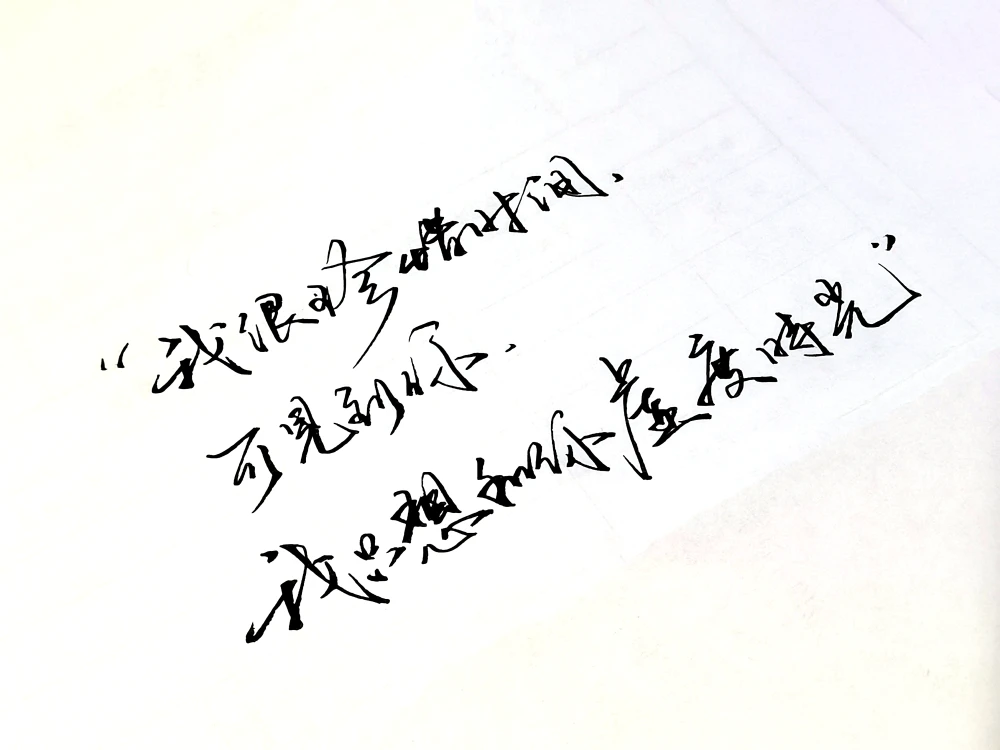 “我很珍惜时间.
可见到你.
我只想和你虚度时光”